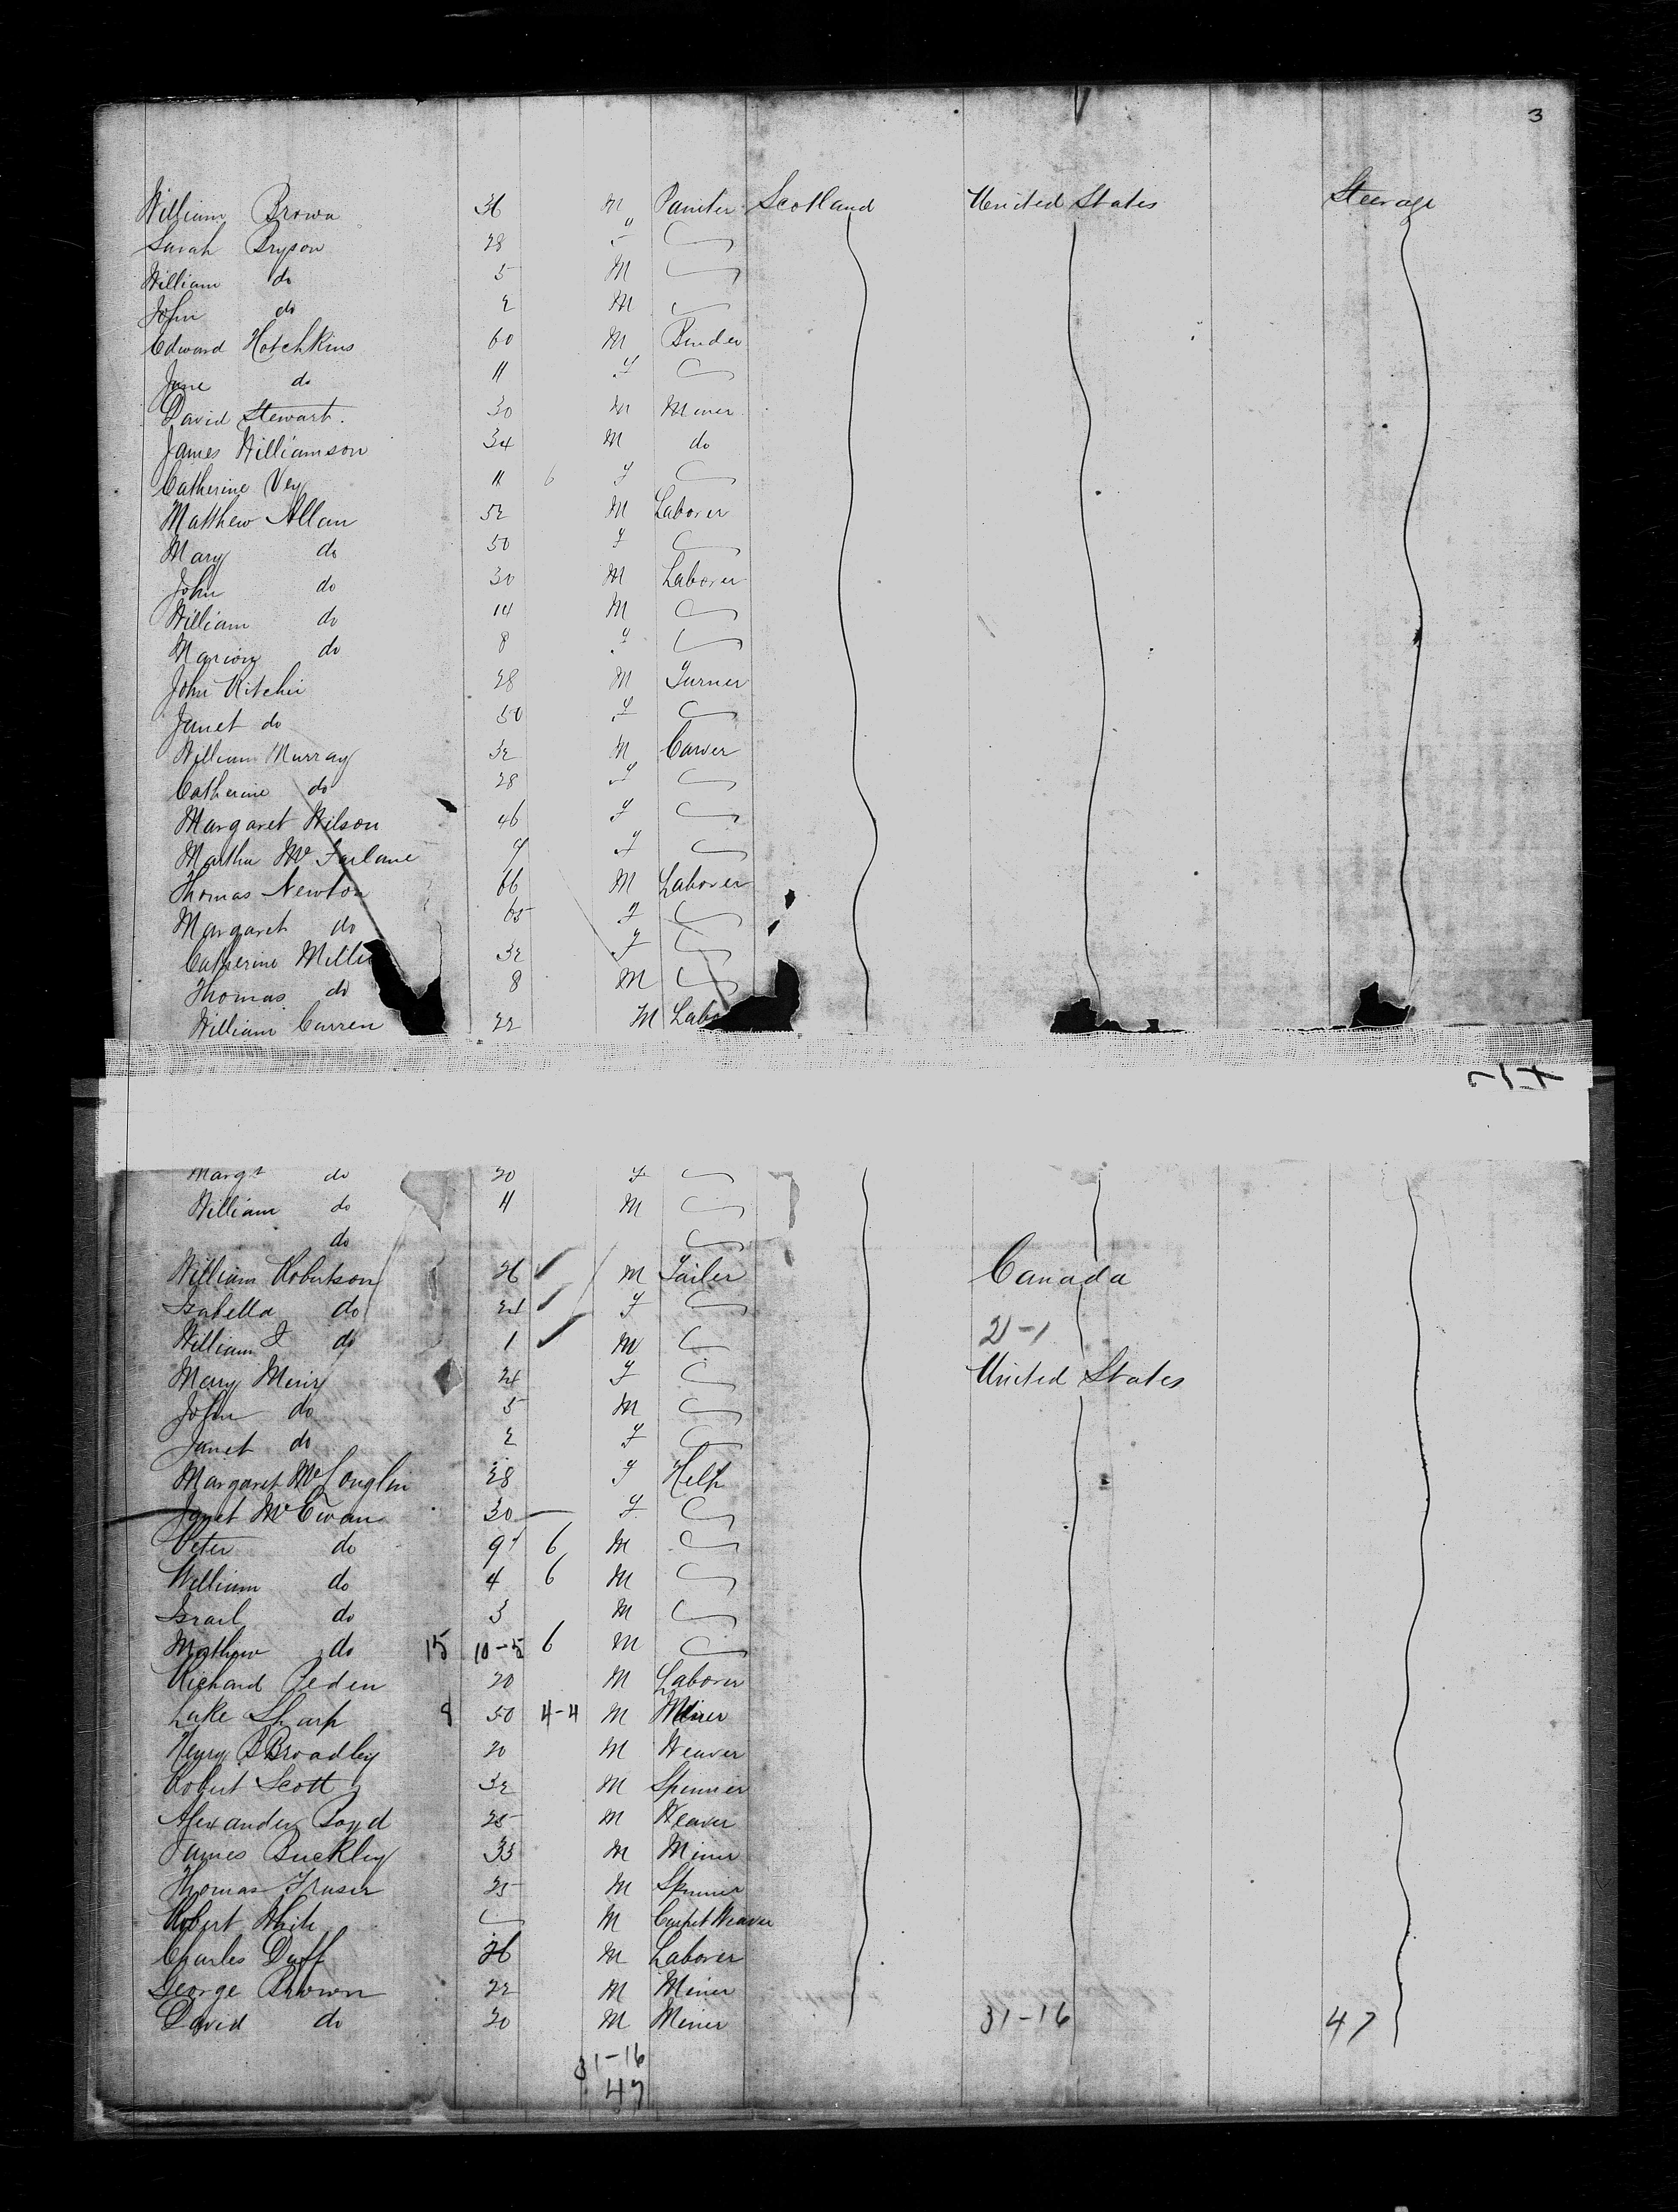 3
William Brown 36 M Painter Scotland United States Steerage
Sarah Bryson 28 "
William do 5 M
John do 2 M
Edward Hotchkins 60 M Binder
Jane do 11 F
David Stewart. 30 M Miner
James Williamson 34 M do
Catherine Vey 11 6 F
Matthew Allan 52 M Laborer
Mary do 50 F
John do 30 M Laborer
William do 14 M
Marion do 8 F
John Ritchie 28 M Turner
Janet do 50 F
William Murray 32 M Carver
Catherine do 28 F
Margaret Wilson 46 F
Martha McFarlane F
Thomas Newton 66 M Laborer
Margaret do 65 F
Catherine 32 F
Thomas do 8 M
William Curren 22 M Labo
Margt do 20 F
William do 4 M
do
William Robertson 26 M Tailer Canada
Isabella do 24 F
William J do 1 M 2-1
Mary 24 F United States
John do 5 M
Janet do 2 F
Margaret McLouglin 28 F Help
Janet McEwan 30 F
Peter do 9 6 M
William do 4 6 M
Israel do 3 M
Mathew do 15 10-5 6 M
Richard Peden 20 M Laborer
Luke Sharp 8 50 4-4 M Miner
Henry B Broadley 20 M Weaver
Robert Scott 32 M Spinner
Alexander Boyd 25 M Weaver
James Buckley 35 M Miner
Thomas Fraser 25 M Spinner
Robert White M Carpet Weaver
Charles Duff 26 M Laborer
George Brown 22 M Miner
David do 20 M Miner 31-16 47
31-16
47